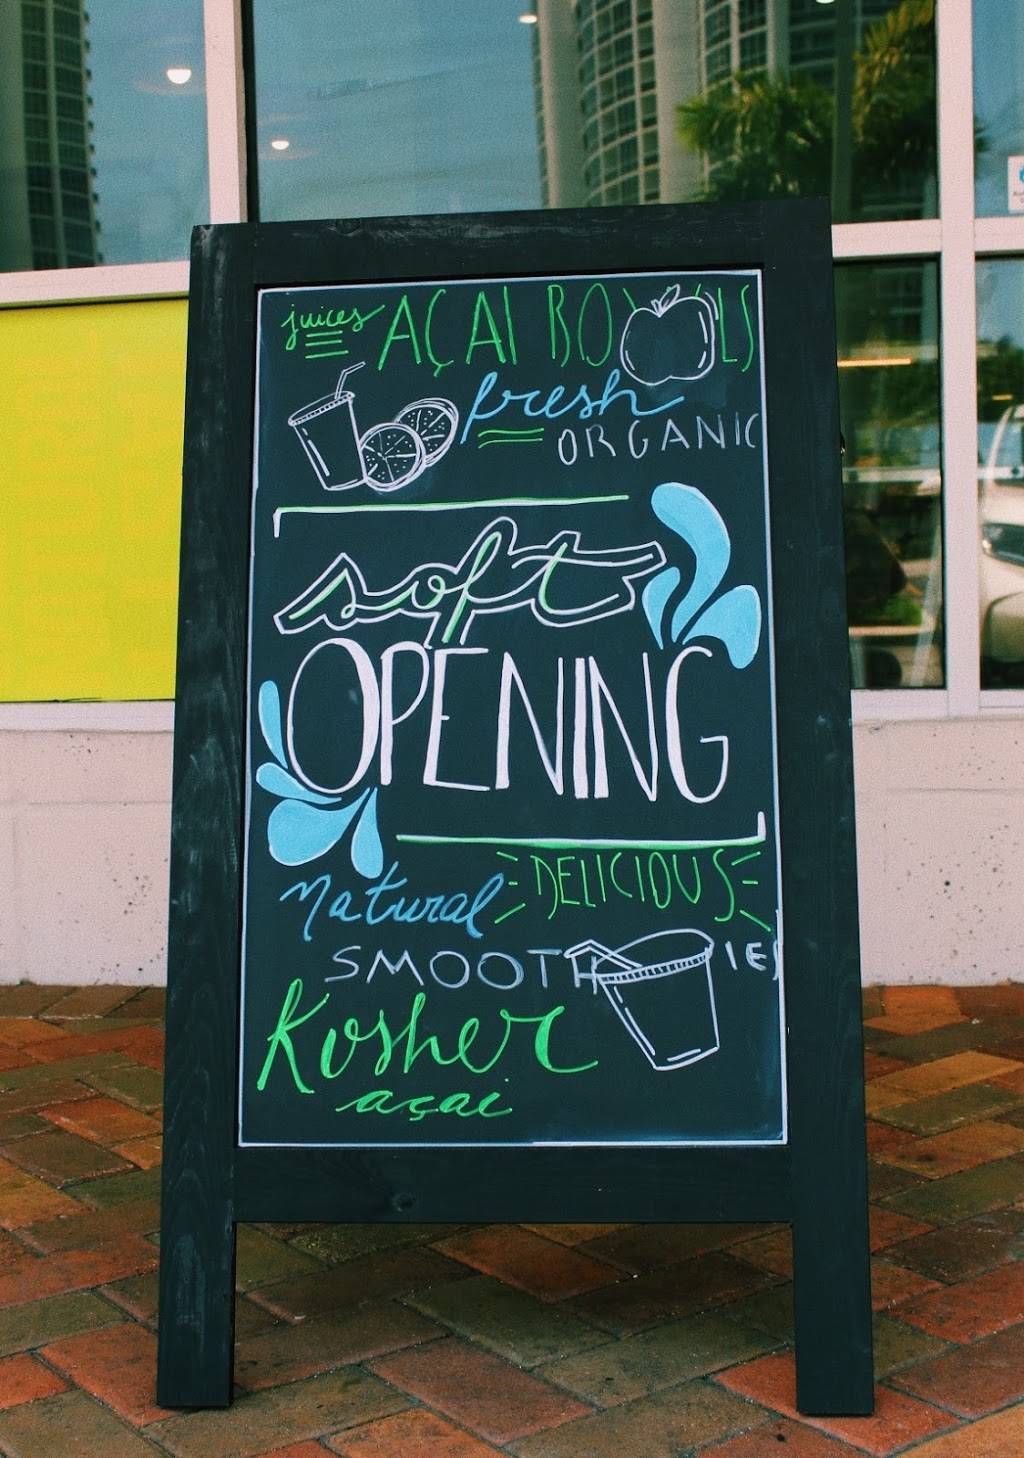 juices AÇAI BOWLS
fresh
ORGANIC
soft
OPENING
Natural DELICIOUS
SMOOTHIES
Kosher
açai